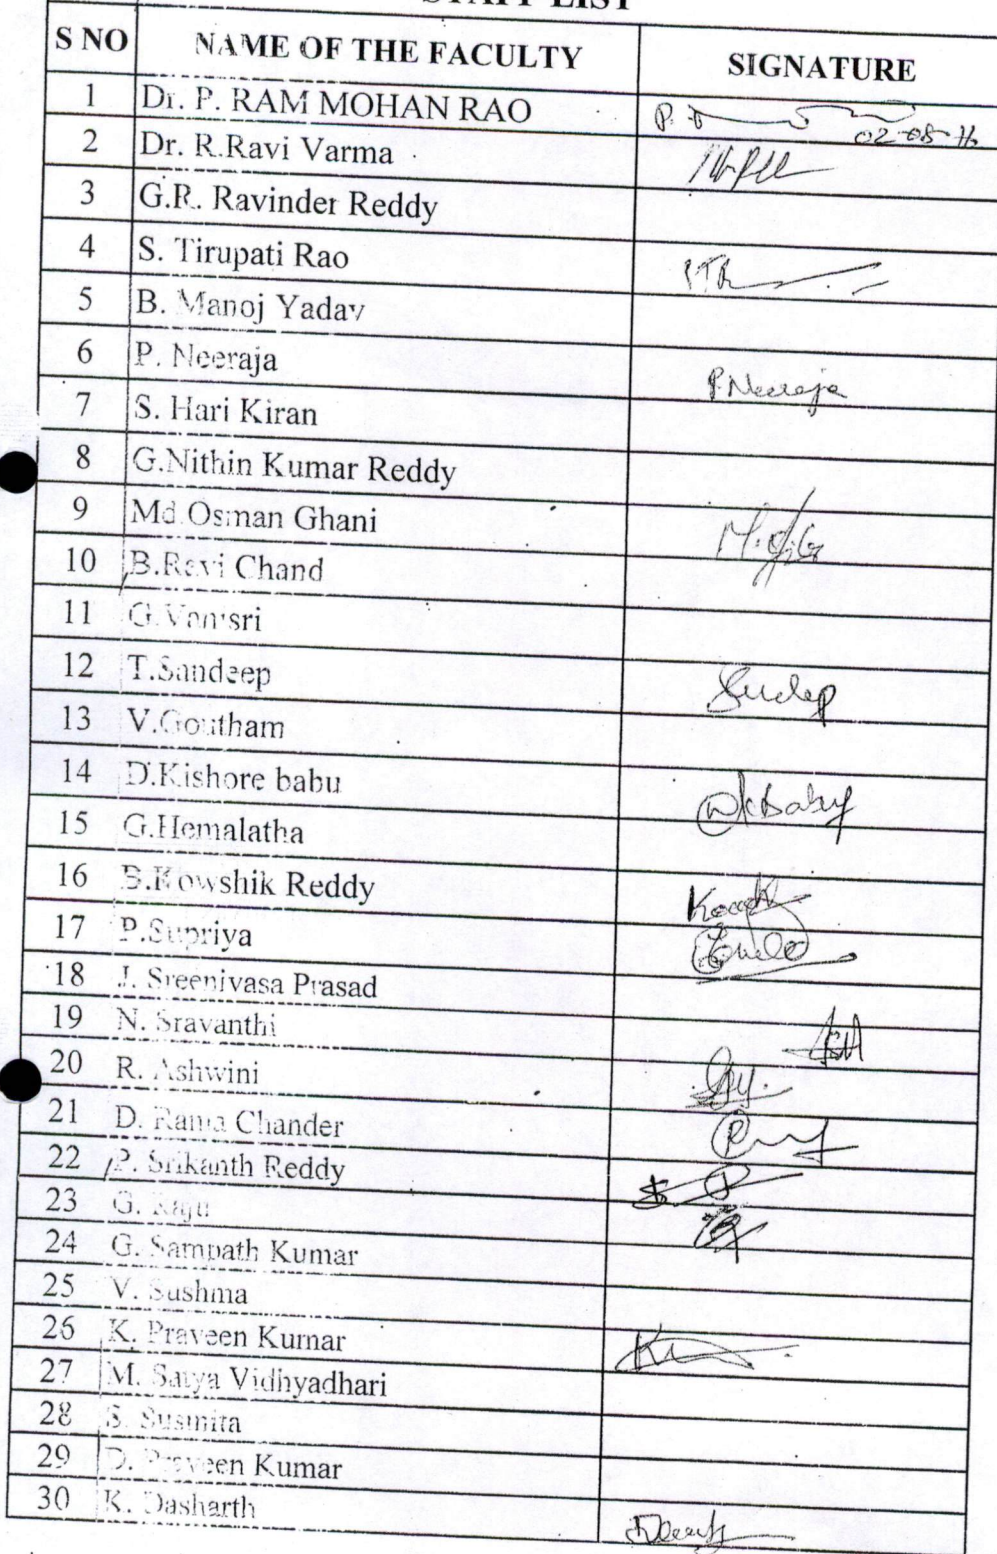 STAFF LIST
S NO NAME OF THE FACULTY SIGNATURE
1 Dr. P. RAM MOHAN RAO 02-08-16
2 Dr. R.Ravi Varma
3 G.R. Ravinder Reddy
4 S. Tirupati Rao
5 B. Manoj Yadav
6 P. Neeraja P.Neeraja
7 S. Hari Kiran
8 G.Nithin Kumar Reddy
9 Md.Osman Ghani
10 B.Ravi Chand
11 G.Vanisri
12 T.Sandeep
13 V.Goutham
14 D.Kishore babu DkBabu
15 G.Hemalatha
16 B.Kowshik Reddy
17 P.Supriya
18 J. Sreenivasa Prasad
19 N. Sravanthi
20 R. Ashwini
21 D. Rama Chander
22 P. Srikanth Reddy
23 G. Raju
24 G. Sampath Kumar
25 V. Sushma
26 K. Praveen Kumar
27 M. Satya Vidhyadhari
28 S. Susmita
29 D. Praveen Kumar
30 K. Dasharth